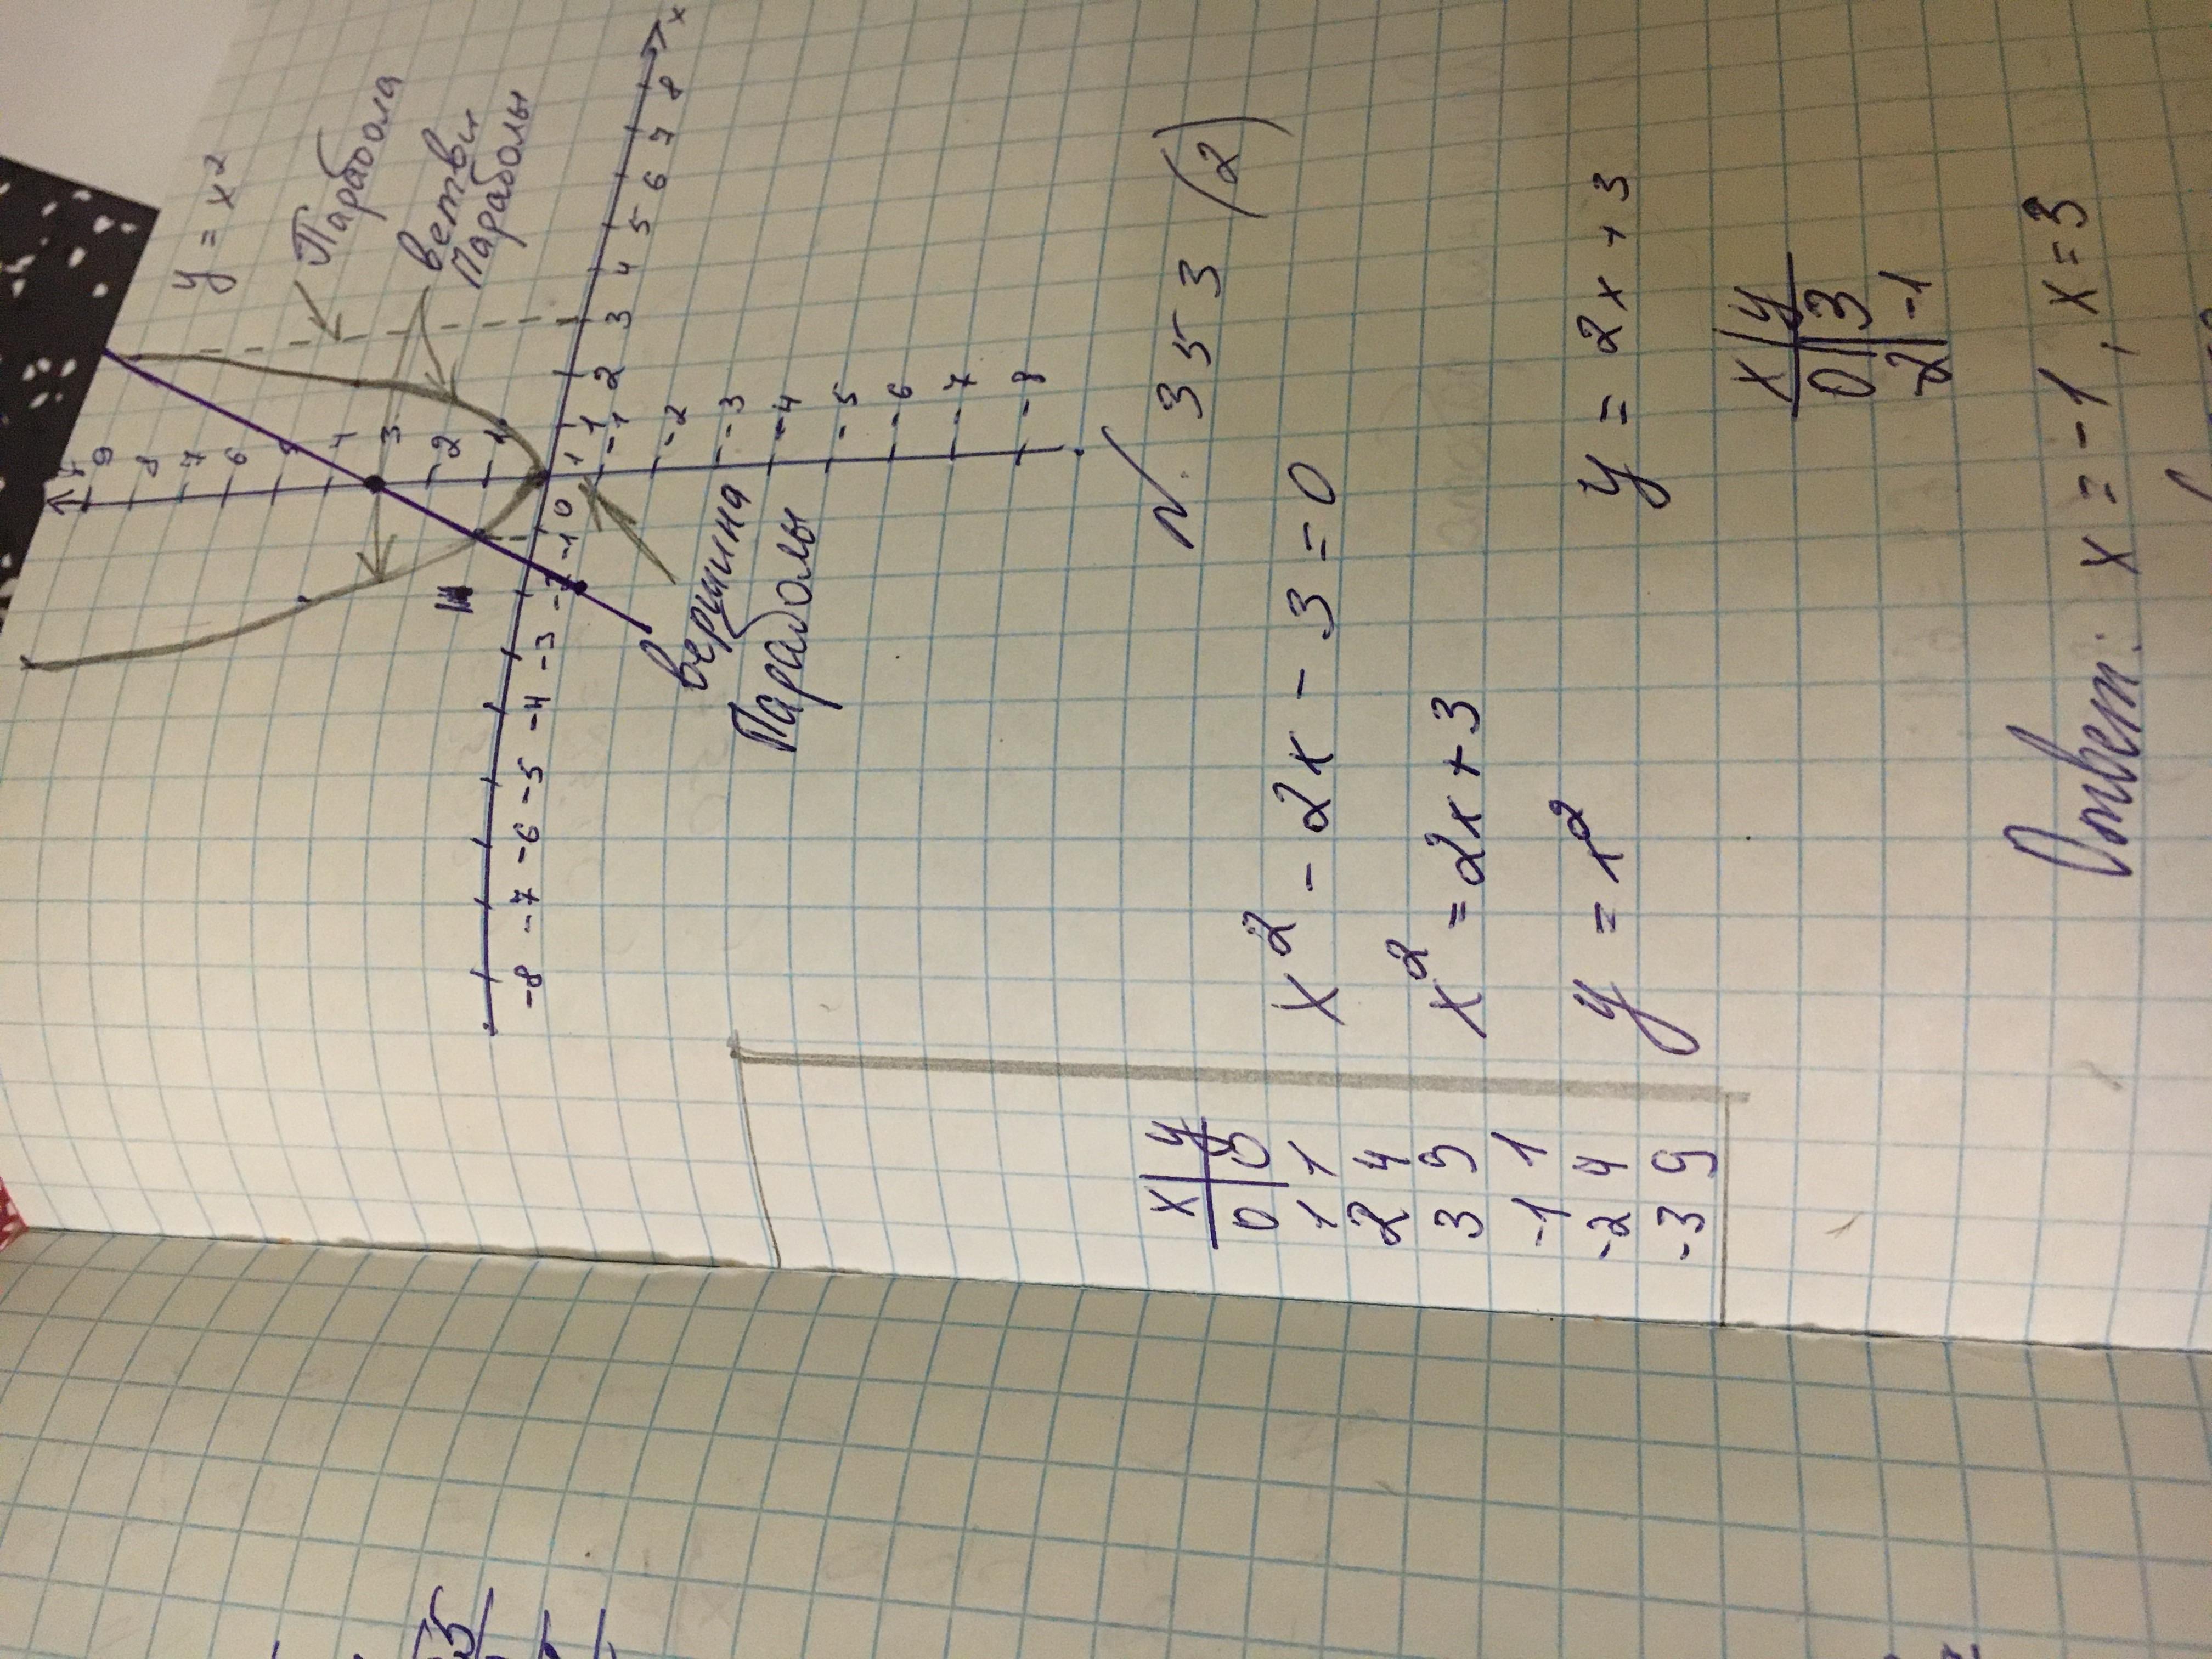 y = x²
Парабола
ветви
Параболы
y
9
8
7
6
5
4
3
2
1
-8 -7 -6 -5 -4 -3 -2 -1 0 1 2 3 4 5 6 7 8 x
-1
-2
-3
-4
-5
-6
-7
-8
вершина
Параболы
N. 353 (2)
x² - 2x - 3 = 0
x² = 2x + 3
y = x² y = 2x + 3
x y
0 0
1 1
2 4
3 9
-1 1
-2 4
-3 9
x y
0 3
-2 -1
Ответ: x = -1, x = 3